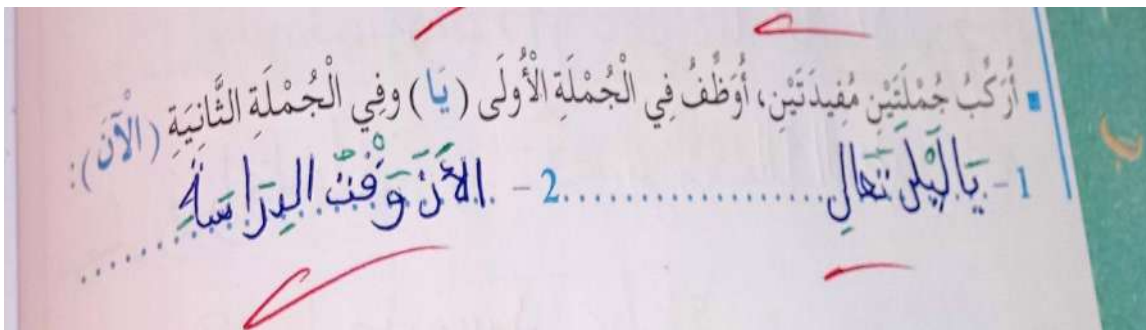 ▪ أُرَكِّبُ جُمْلَتَيْنِ مُفِيدَتَيْنِ، أُوَظِّفُ فِي الْجُمْلَةِ الْأُولَى (يَا) وفِي الْجُمْلَةِ الثَّانِيَةِ (الْآنَ):
1 - يَا لَيْلَى تَعَالِ .................. 2 - الأَنَ وَقْتُ الدِرَاسَةِ ........